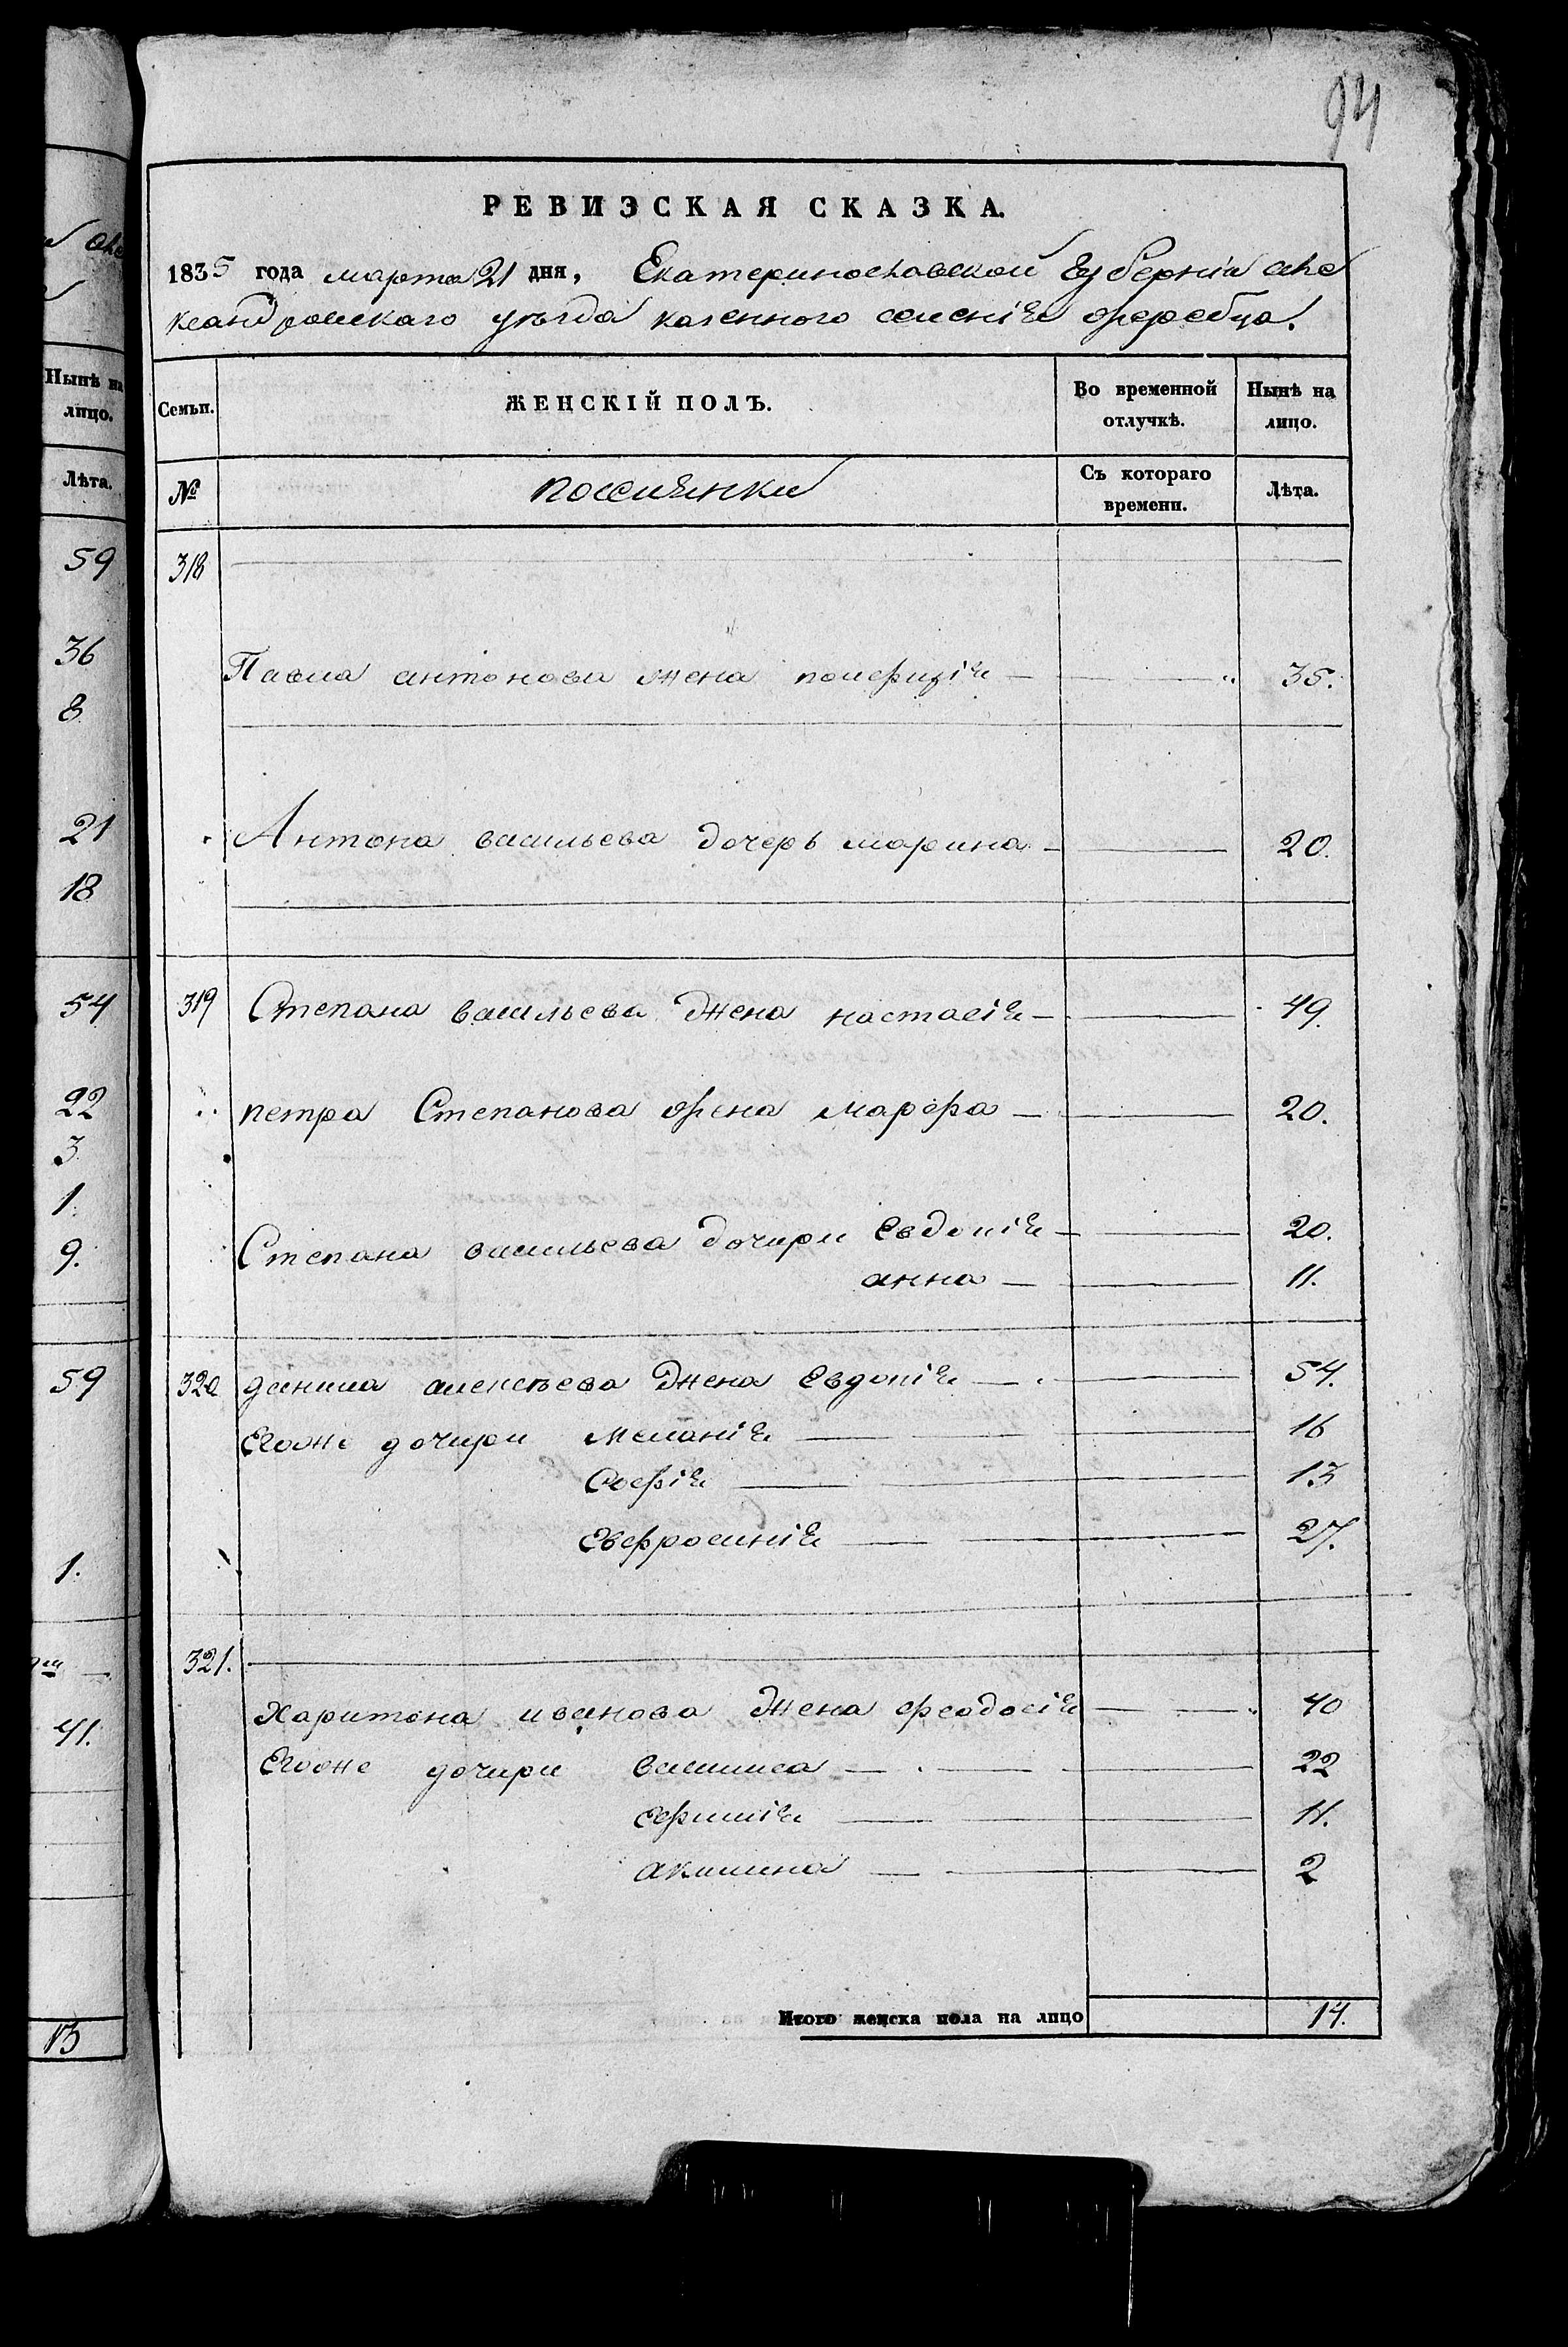 94
РЕВИЗСКАЯ СКАЗКА.
1835 года марта 21 дня, Екатеринославской губерніи але
ксандровскаго уезда казенного селенія жеребца.
Семьи.
ЖЕНСКІЙ ПОЛЪ.
Во временной отлучкѣ.
Нынѣ на лицо.
№
поселянки
Съ котораго времени.
Лѣта.
318
Павла антонова жена пелефизія — 35.
Антона васильева дочерь марина — 20.
319 Степана васильева жена настасія — 49.
петра Степанова жена марфа — 20.
Степана васильева дочери Евдокія — 20.
анна — 11.
320 данила алексѣева жена Евдокія — 54.
Егоже дочери меланія — 16
Софія — 13
Евфросинія — 27.
321.
Харитона иванова жена феодосія — 40
Егоже дочери василиса — 22
ефимія — 11.
акилина — 2
Итого женска пола на лицо 14.
Нынѣ на
лицо.
Лѣта.
59
36
8
21
18
54
22
3
1
9.
59
1.
41.
13